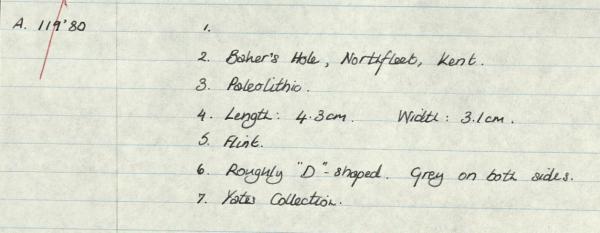 A. 119'80 1.
2. Baker's Hole, Northfleet, Kent.
3. Paleolithic.
4. Length: 4.3cm. Width: 3.1cm.
5. Flint.
6. Roughly "D"-shaped. Grey on both sides.
7. Yates Collection.